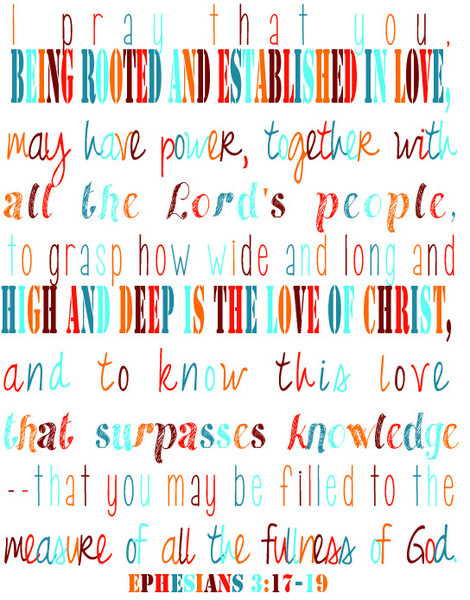 I pray that you,
BEING ROOTED AND ESTABLISHED IN LOVE,
may have power, together with
all the Lord's people,
to grasp how wide and long and
HIGH AND DEEP IS THE LOVE OF CHRIST,
and to know this love
that surpasses knowledge
--that you may be filled to the
measure of all the fullness of God.
EPHESIANS 3:17-19